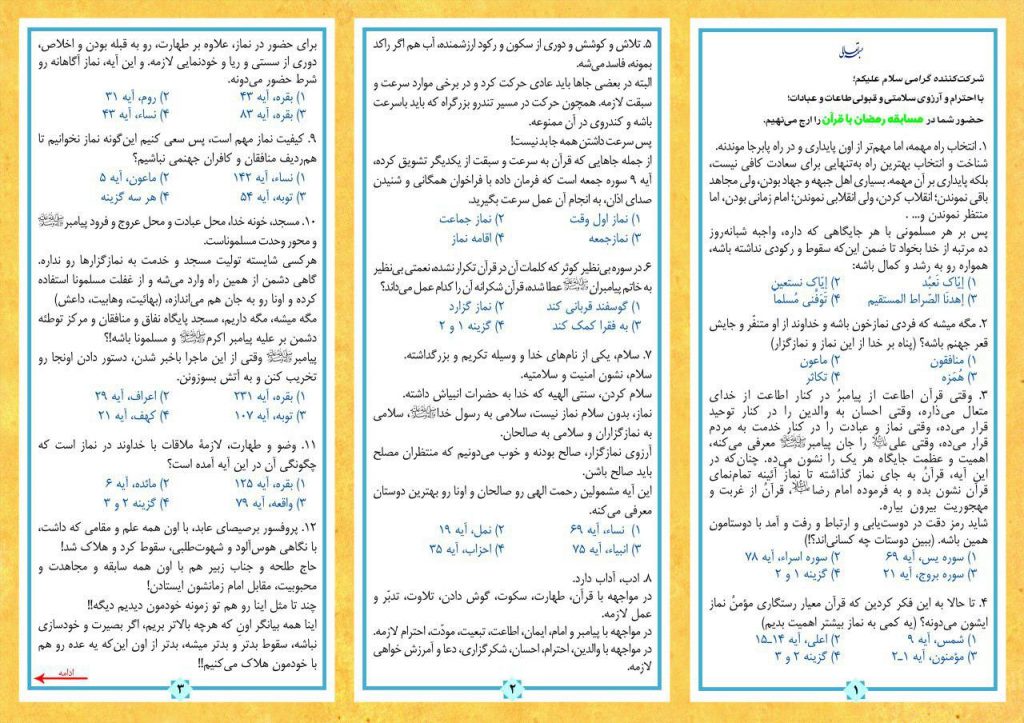 بسمه تعالی
شرکت‌کننده گرامی سلام علیکم؛
با احترام و آرزوی سلامتی و قبولی طاعات و عبادات؛
حضور شما در مسابقه رمضان با قرآن را ارج می‌نهیم.
۱. انتخاب راه مهمه، اما مهم‌تر از اون پایداری و در راه پابرجا موندنه.
شناخت و انتخاب بهترین راه به‌تنهایی برای سعادت کافی نیست،
بلکه پایداری بر آن مهمه. بسیاری اهل جبهه و جهاد بودن، ولی مجاهد
باقی نموندن؛ انقلاب کردن، ولی انقلابی نموندن؛ امام زمانی بودن، اما
منتظر نموندن و... .
پس بر هر مسلمونی با هر جایگاهی که داره، واجبه شبانه‌روز
ده مرتبه از خدا بخواد تا ضمن این‌که سقوط و رکودی نداشته باشه،
همواره رو به رشد و کمال باشه:
۱) اِیّاک نَعبُد ۲) اِیّاک نستعین
۳) اِهدنَا الصّراط المستقیم ۴) تَوَفَّنی مُسلما
۲. مگه میشه که فردی نمازخون باشه و خداوند از او متنفّر و جایش
قعر جهنم باشه؟ (پناه بر خدا از این نماز و نمازگزار)
۱) منافقون ۲) ماعون
۳) هُمَزه ۴) تکاثر
۳. وقتی قرآن اطاعت از پیامبرُ در کنار اطاعت از خدای
متعال می‌ذاره، وقتی احسان به والدین را در کنار توحید
قرار می‌ده، وقتی نماز و عبادت را در کنار خدمت به مردم
قرار می‌ده، وقتی علی را جان پیامبر معرفی می‌کنه،
اهمیت و عظمت جایگاه هر یک را نشون می‌ده. چنان‌که در
این آیه، قرآنُ به جای نماز گذاشته تا نمازُ آئینه تمام‌نمای
قرآن نشون بده و به فرموده امام رضا، قرآنُ از غربت و
مهجوریت بیرون بیاره.
شاید رمز دقت در دوست‌یابی و ارتباط و رفت و آمد با دوستامون
همین باشه. (ببین دوستات چه کسانی‌اند؟!)
۱) سوره یس، آیه ۶۹ ۲) سوره اسراء، آیه ۷۸
۳) سوره بروج، آیه ۲۱ ۴) گزینه ۱ و ۲
۴. تا حالا به این فکر کردین که قرآن معیار رستگاری مؤمنُ نماز
ایشون می‌دونه؟ (یه کمی به نماز بیشتر اهمیت بدیم)
۱) شمس، آیه ۹ ۲) اعلی، آیه ۱۴ـ۱۵
۳) مؤمنون، آیه ۱ـ۲ ۴) گزینه ۲ و ۳
۱
۵. تلاش و کوشش و دوری از سکون و رکود ارزشمنده، آب هم اگر راکد
بمونه، فاسد می‌شه.
البته در بعضی جاها باید عادی حرکت کرد و در برخی موارد سرعت و
سبقت لازمه. همچون حرکت در مسیر تندرو بزرگراه که باید باسرعت
باشه و کندروی در آن ممنوعه.
پس سرعت داشتن همه جا بد نیست!
از جمله جاهایی که قرآن به سرعت و سبقت از یکدیگر تشویق کرده،
آیه ۹ سوره جمعه است که فرمان داده با فراخوان همگانی و شنیدن
صدای اذان، به انجام آن عمل سرعت بگیرید.
۱) نماز اول وقت ۲) نماز جماعت
۳) نمازجمعه ۴) اقامه نماز
۶. در سوره بی‌نظیر کوثر که کلمات آن در قرآن تکرار نشده، نعمتی بی‌نظیر
به خاتم پیامبران عطا شده، قرآن شکرانه آن را کدام عمل می‌داند؟
۱) گوسفند قربانی کند ۲) نماز گزارد
۳) به فقرا کمک کند ۴) گزینه ۱ و ۲
۷. سلام، یکی از نام‌های خدا و وسیله تکریم و بزرگداشته.
سلام، نشون امنیت و سلامتیه.
سلام کردن، سنتی الهیه که خدا به حضرات انبیاش داشته.
نماز، بدون سلام نماز نیست، سلامی به رسول خدا، سلامی
به نمازگزاران و سلامی به صالحان.
آرزوی نمازگزار، صالح بودنه و خوب می‌دونیم که منتظران مصلح
باید صالح باشن.
این آیه مشمولین رحمت الهی رو صالحان و اونا رو بهترین دوستان
معرفی می‌کنه.
۱) نساء، آیه ۶۹ ۲) نمل، آیه ۱۹
۳) انبیاء، آیه ۷۵ ۴) احزاب، آیه ۳۵
۸. ادب، آداب دارد.
در مواجهه با قرآن، طهارت، سکوت، گوش دادن، تلاوت، تدبّر و
عمل لازمه.
در مواجهه با پیامبر و امام، ایمان، اطاعت، تبعیت، مودّت، احترام لازمه.
در مواجهه با والدین، احترام، احسان، شکرگزاری، دعا و آمرزش خواهی
لازمه.
۲
برای حضور در نماز، علاوه بر طهارت، رو به قبله بودن و اخلاص،
دوری از سستی و ریا و خودنمایی لازمه. و این آیه، نماز آگاهانه رو
شرط حضور می‌دونه.
۱) بقره، آیه ۴۳ ۲) روم، آیه ۳۱
۳) بقره، آیه ۸۳ ۴) نساء، آیه ۴۳
۹. کیفیت نماز مهم است، پس سعی کنیم این‌گونه نماز نخوانیم تا
هم‌ردیف منافقان و کافران جهنمی نباشیم؟
۱) نساء، آیه ۱۴۲ ۲) ماعون، آیه ۵
۳) توبه، آیه ۵۴ ۴) هر سه گزینه
۱۰. مسجد، خونه خدا، محل عبادت و محل عروج و فرود پیامبر
و محور وحدت مسلموناست.
هرکسی شایسته تولیت مسجد و خدمت به نمازگزارها رو نداره.
گاهی دشمن از همین راه وارد می‌شه و از غفلت مسلمونا استفاده
کرده و اونا رو به جان هم می‌اندازه، (بهائیت، وهابیت، داعش)
مگه میشه، مگه داریم، مسجد پایگاه نفاق و منافقان و مرکز توطئه
دشمن بر علیه پیامبر اکرم و مسلمونا باشه!؟
پیامبر وقتی از این ماجرا باخبر شدن، دستور دادن اونجا رو
تخریب کنن و به آتش بسوزونن.
۱) بقره، آیه ۲۳۱ ۲) اعراف، آیه ۲۹
۳) توبه، آیه ۱۰۷ ۴) کهف، آیه ۲۱
۱۱. وضو و طهارت، لازمهٔ ملاقات با خداوند در نماز است که
چگونگی آن در این آیه آمده است؟
۱) بقره، آیه ۱۲۵ ۲) مائده، آیه ۶
۳) واقعه، آیه ۷۹ ۴) گزینه ۲ و ۳
۱۲. پروفسور برصیصای عابد، با اون همه علم و مقامی که داشت،
با نگاهی هوس‌آلود و شهوت‌طلبی، سقوط کرد و هلاک شد!
حاج طلحه و جناب زبیر هم با اون همه سابقه و مجاهدت و
محبوبیت، مقابل امام زمانشون ایستادن!
چند تا مثل اینا رو هم تو زمونه خودمون دیدیم دیگه!!
اینا همه بیانگر اونِ که هرچه بالاتر بریم، اگر بصیرت و خودسازی
نباشه، سقوط بدتر و بدتر میشه، بدتر از اون این‌که یه عده رو هم
با خودمون هلاک می‌کنیم!!
ادامه
۳